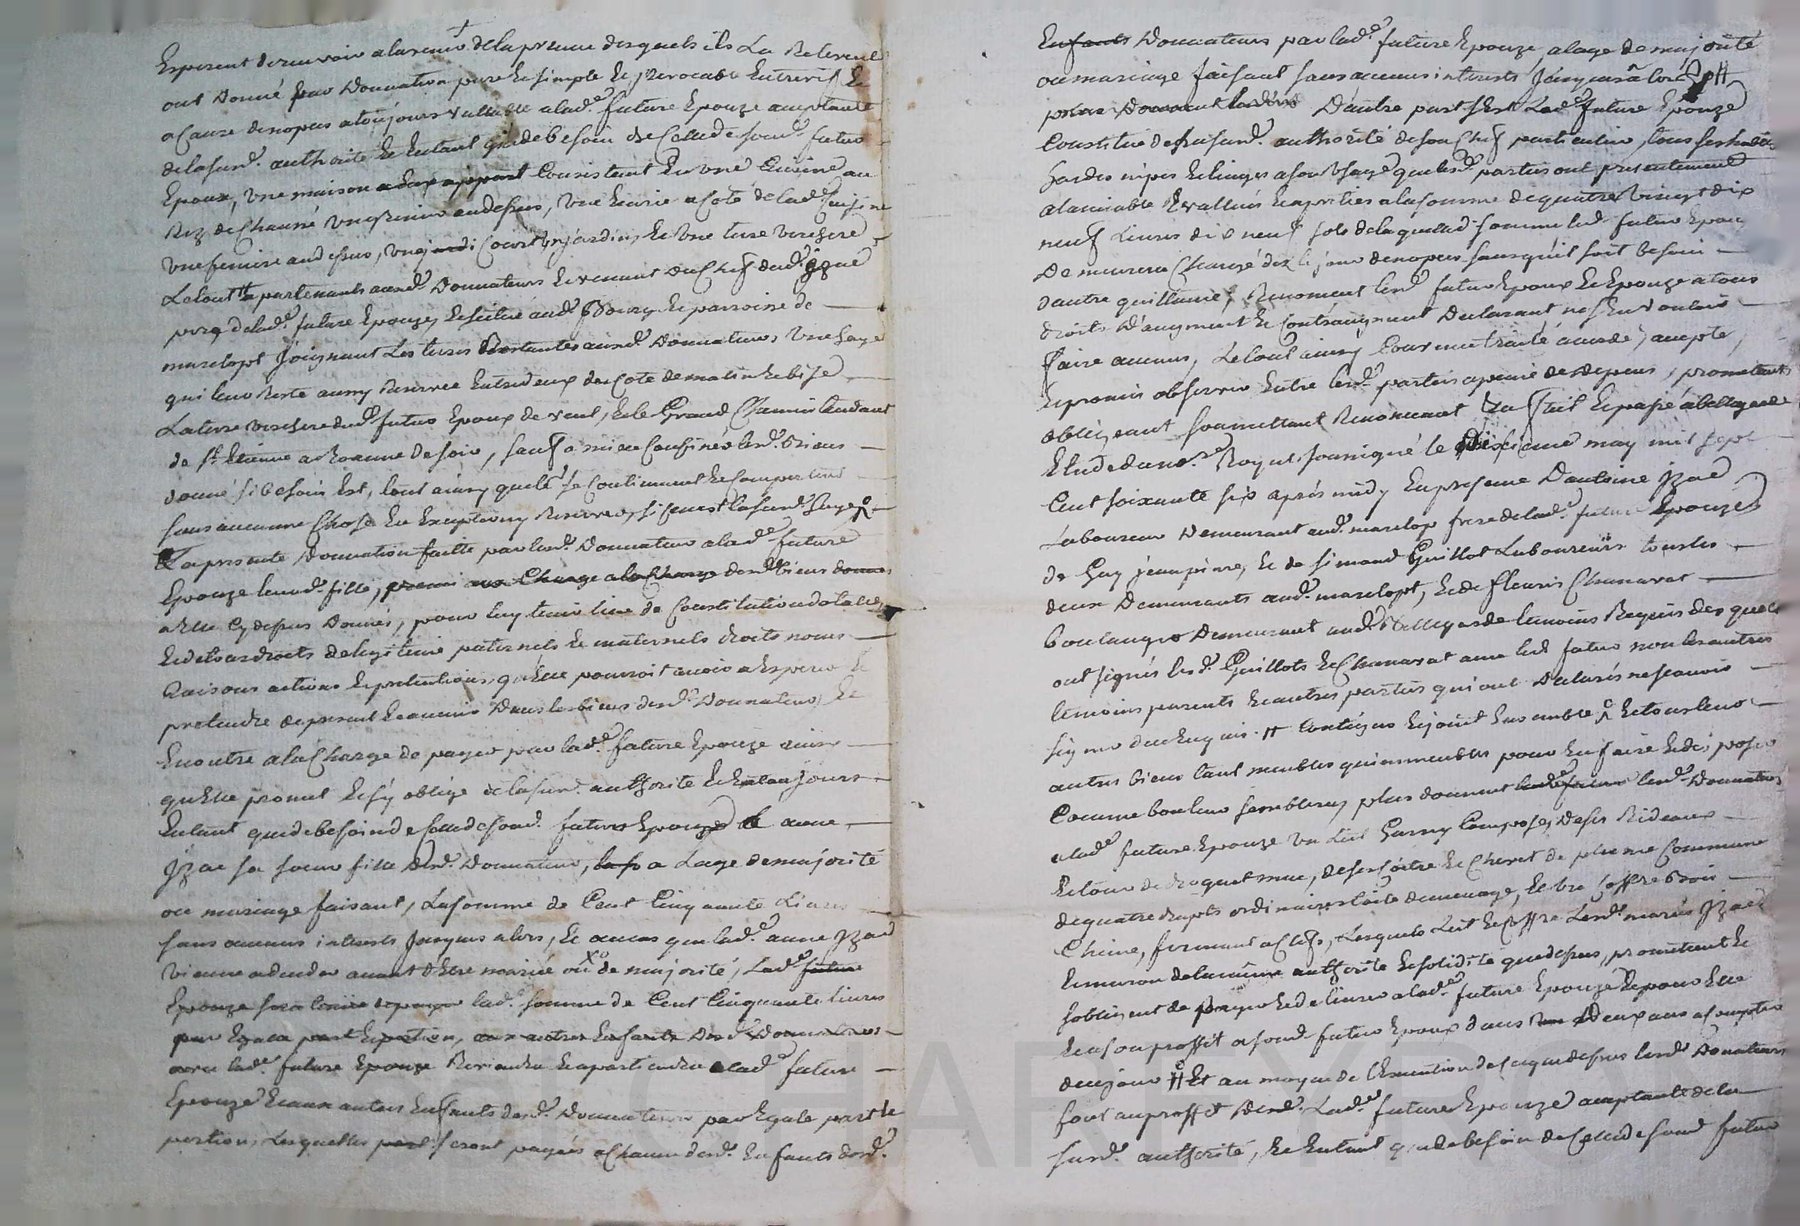 Esperent de recevoir a lavenir de la preuve desquels ils La Relevent
ont Donné par Donnation pure Et simple Et jrrevocable Entrevifs Et
a Cause de nopces a toujours Vallable a lad.e future Epouze acceptante
de la sus.d. authorité Et Entant que de besoin de Celle de sond. futur
Epoux, une maison Consistant En une Cuisine au
Rez de Chaussé un grenier au dessus, une Ecurie a Coté de lad.e Cuisine
une feniere au dessus, Court, jardin, Et une terre verchere
Le tout apartenants aux d. Donnateurs Et venant du Chef dud. jzac
pere de lad.e future Epouze, Et scitué aud. Bourg Et parroisse de
marclopt Joignant Les terres Restantes auxd. Donnateurs, une haye
qui leur Reste aussy Reservée Entredeux des Coté de matin Et bize
La terre verchere dud. futur Epoux de vent, Et le Grand Chemin tendant
de St. Etienne a Roanne de soir, sauf a mieux Confiner lesd. Biens
donné si besoin Est, tout ainsy quils se Contiennent Et Comportent
sans aucune Chose En Excepter ny Reserver, si ce n'est la susd. haye
La presente Donnation faitte par lesd. Donnateurs a lad.e future
Epouze leurd. fille, desd. biens
a Elle Cy dessus Donnés, pour luy tenir lieu de Constitution dotalle,
Et de tous droits de legitime paternels Et maternels droits noms
Raisons actions Et pretentions, qu'Elle pourroit avoir a Esperer Et
pretendre de present Et a venir Dans les biens desd. Donnateurs, Et
En outre a la Charge de payer par lad.e future Epouze ainsy
qu'Elle promet Et s'y oblige de la susd. authorité Et toujours
Entant que de besoin de celle de sond. futur Epoux a anne
Jzac sa soeur fille desd. Donnateurs, a Lage de majorité
ou mariage faisant, La somme de Cent Cinquante Livres
sans aucuns interests Jusques alors, Et au cas que lad.e anne Jzac
vienne a deceder avant d'Etre mariée ou de majorité, Lad.e future
Epouze lad.e somme de Cent Cinquante livres
par Egale part Et portion, aux autres Enfants desd. Donnateurs
avec lad.e future Epouze Reviendra Et apartiendra a lad.e future
Epouze Et aux autres Enfants desd. Donnateurs par Egale part Et
portion, Lesquelles seront payées a Chacun desd. Enfants desd.
Enfants Donnateurs par lad.e future Epouze, a lage de majorité
ou mariage faisant sans aucuns interests Jusques a lors
D'autre part s'est Lad.e future Epouze
Constitué de sa susd. authorité de son Chef particulier, tous ses habits
hardes nipes Et linges a son Usage que lesd. parties ont presentement
a lamiable Evallués Et aprétiés a la somme de quatre vingt dix
neuf Livres dix neuf sols de laquelle somme led. futur Epoux
Demeurera Chargé dez le jour de nopces sans qu'il soit besoin
dautre quittance, Renoncent lesd. futur Epoux Et Epouze a tous
droits D'augment Et Contraugment Declarant n'En vouloir
faire aucuns, Le tout ainsy Convenu traité accordé, accepté,
Et promis observer Entre lesd. parties a peine de depens, promettants
obligeant soumettant Renonceant Fait Et passé a bellegarde
Etude du no.re Royal soussigné le Dixieme may mil sept
Cent soixante six aprés midy En presence D'antoine jzac
Laboureur Demeurant aud. marclop frere de lad.e future Epouze
de Guy jean pierre, Et de simond Guillot Laboureurs tous les
deux Demeurants aud. marclopt, Et de fleuris Chanavat
boulanger Demeurant aud. Bellegarde temoins Requis desquels
ont signés lesd. Guillots Et Chanavat avec led. futur non les autres
temoins parents Et autres parties qui ont Declarés ne scavoir
signer de ce Enquis. # Contigus Et joint Ensemble Et tous leurs
autres biens tant meubles qu'immeubles pour En faire Et disposer
Comme bon leur semblera, plus donnent lesd. Donnateurs
a lad.e future Epouze un Lit Garny Composé, de ses Rideaux
Et tour de droguet , de ses Coitre Et Chevet de plume Commune
de quatre draps ordinaires toile de menage, Et un Coffre Bois
Chene, fermant a Clefs, Lesquels Lit Et Coffre Lesd. mariés Jzac
Et authorité Et solidité que dessus, promettent Et
sobligent de payer Et delivrer a lad.e future Epouze Et pour Elle
Et a son proffit a sond. futur Epoux dans deux ans a Compter
de ce jour # Et au moyen de l'Execution de ce que dessus lesd. Donateurs
font au proffit desd. Lad.e future Epouze acceptante de la
susd. authorité, Et Entant que de besoin de Celle de sond. futur